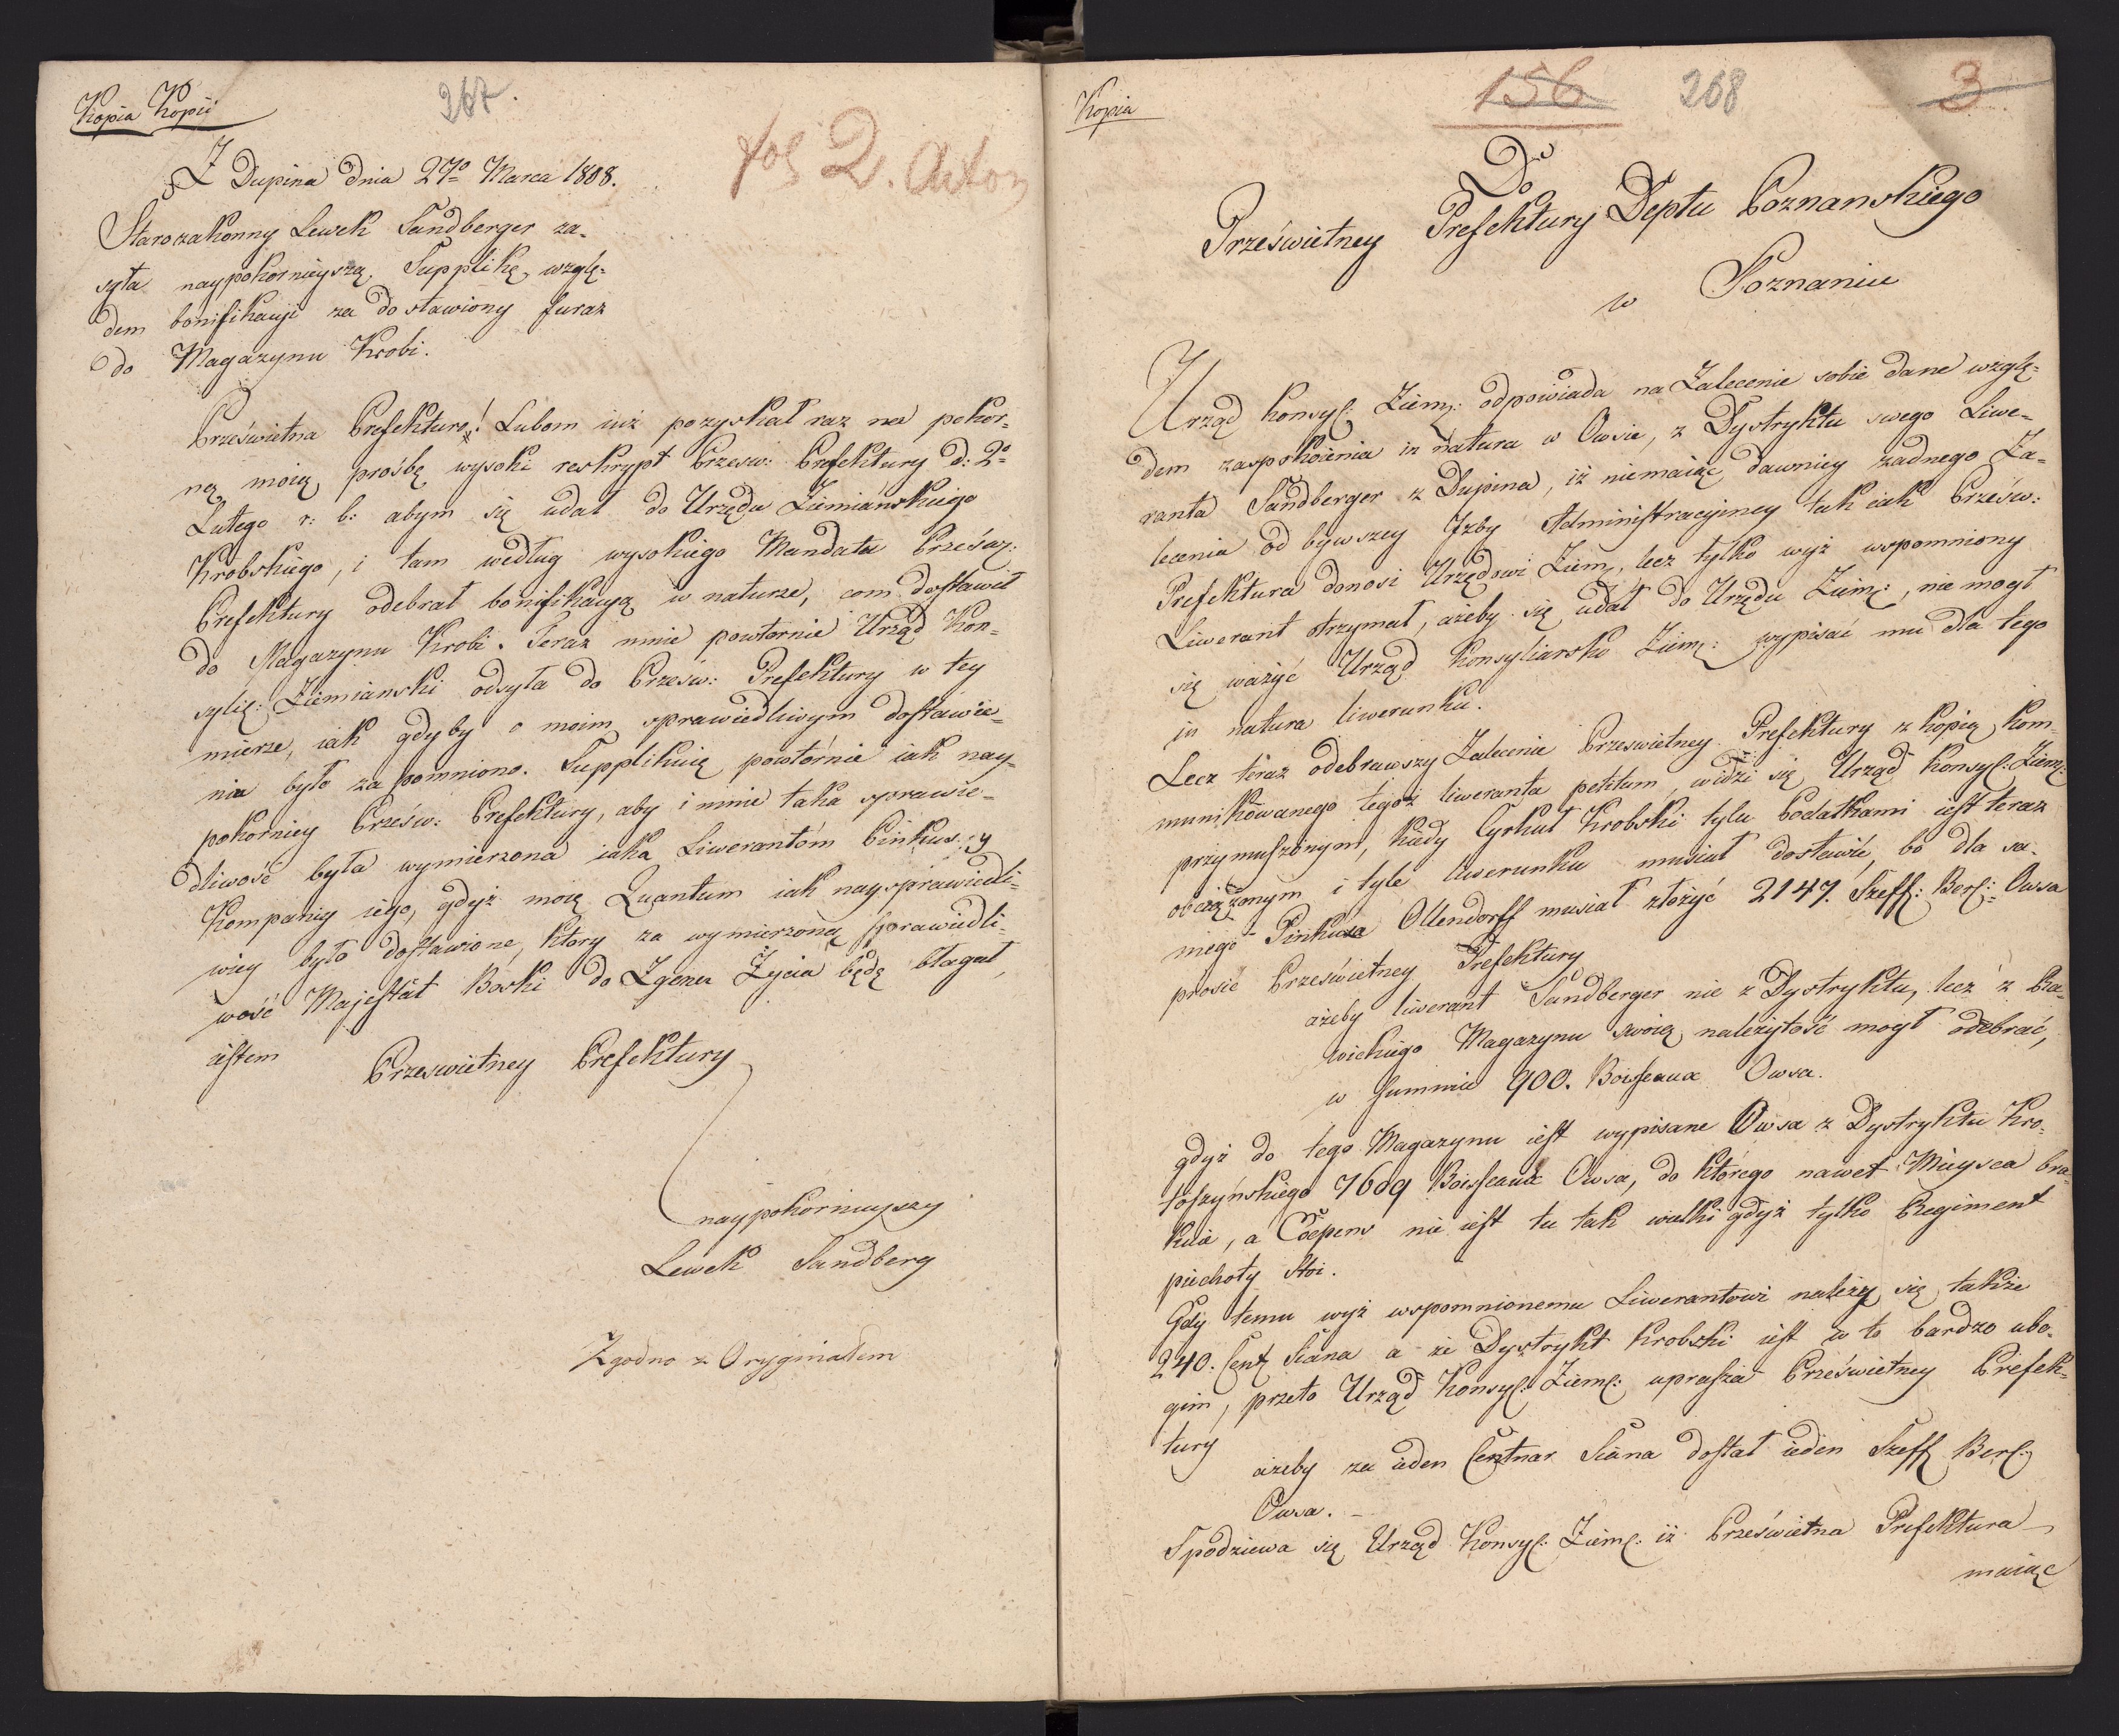 Kopia Kopii
267.
Z Dupina dnia 27º Marca 1808.
Starozakonny Lewek Sandberger za-
syła naypokornieyszą Supplikę, wzglę-
dem bonifikacyi za dostawiony furaz
do Magazynu Krobi.
Prześwietna Prefekturo! Lubom iuż pozyskał raz na pokor-
ną moią prośbę wysoki reskrypt Przesw: Prefektury d: 2º
Lutego r: b: abym się udał do Urzędu Ziemiańskiego
Krobskiego, i tam według wysokiego Mandatu Prześw:
Prefektury odebrał bonifikacyą w naturze, com dostawił
do Magazynu Krobi. Teraz mnie powtornie Urząd Kon-
sylia: Ziemianski odsyła do Prześw: Prefektury w tey
mierze, iak gdyby o moim sprawiedliwym dostawie-
nia było zapomniono. Supplikuię powtórnie iak nay-
pokorniey Prześw: Prefektury, aby i mnie taka sprawie-
dliwość była wymierzona iaka Liwerantóm Pinkus: y
Kompanij iego, gdyż moie Quantum iak naysprawiedli-
wiey było dostawione, ktory za wymierzoną sprawiedli-
wość Majestat Boski do Zgonu Życia będę błagał,
iestem
Przeswietney Prefektury
naypokornieyszy
Lewek Sandberg
Zgodno z Oryginałem
fol 2.
Kopia
156
268
3
Do
Prześwietney Prefektury Deptu Poznanskiego
w Poznaniu
Urząd Konsyl: Ziem: odpowiada na Zalecenie sobie dane wzglę-
dem zaspokoienia in natura w Owsie, z Dystryktu swego Liwe-
ranta Sandberger z Dupina, iż niemaiąc dawniey żadnego Za-
lecenia od bywszey Izby Administracyiney tak iak Prześw:
Prefektura donosi Urzędowi Ziem:, lecz tylko wyż wspomniony
Liwerant otrzymał, ażeby się udał do Urzędu Ziem:, nie mogł
się ważyć Urząd Konsyliarsko Ziem: wypisać mu dla tego
in natura liwerunku.
Lecz teraz odebrawszy Zalecenie Przeswietney Prefektury z kopią kom-
munikowanego tegoż liweranta petitum, widzi się Urząd Konsyl: Ziem:
przymuszonym, kiedy Cyrkuł Krobski tylu Podatkami iest teraz
obciążonym i tyle liwerunku musiał dostawić, bo dla sa-
mego Pinkusa Ollendorff musiał złożyć 2147. Szeff: Berl: Owsa
prosić Prześwietney Prefektury
ażeby liwerant Sandberger nie z Dystryktu, lecz z Ra-
wickiego Magazynu swoią należytość mogł odebrać,
w Summie 900. Boisseaux Owsa.
gdyż do tego Magazynu iest wypisane Owsa z Dystryktu Kro-
toszyńskiego 7609 Boisseaux Owsa, do którego nawet Mieysca bra-
kuie, a Coepens nie iest tu tak wielki gdyż tylko Regiment
piechoty stoi.
Gdy temu wyż wspomnionemu Liwerantowi należy się także
240. Cent Siana a że Dystrykt Krobski iest w to bardzo ubo-
gim, przeto Urząd Konsyl: Ziem: uprasza Prześwietney Prefek-
tury
ażeby za ieden Centnar Siana dostał ieden Szeff Berl:
Owsa. –
Spodziewa się Urząd Konsyl: Ziem: iż Prześwietna Prefektura
maiąc